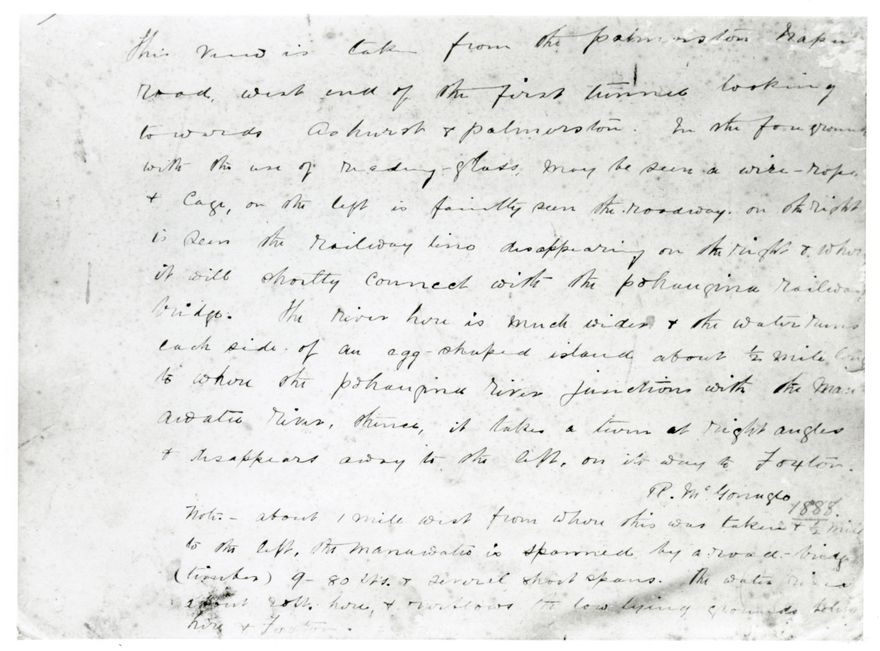 This view is take from the palmerston Napier
road, west end of the first tunnel looking
towards Ashurst & palmerston. In the foreground
with the use of reading-glass, may be seen a wire-rope
& Cage, on the left is faintly seen the roadway. on the right
is seen the railway line disappearing on the right & where
it will shortly connect with the pohangina railway
bridge. The river here is much wider & the water runs
each side of an egg-shaped island about ½ mile long
to where the pohangina river junctions with the Man
awatu river, thence, it takes a turn at right angles
& disappears away to the left, on its way to Foxton.
R. McGonagle
1888.
Note - about 1 mile west from where this was taken & ½ mile
to the left, the Manawatu is spanned by a road-bridge
(timber) 9 - 80 fts. & several short spans. The water rises
about 20ft. here, & overflows the low lying grounds
here & Foxton.